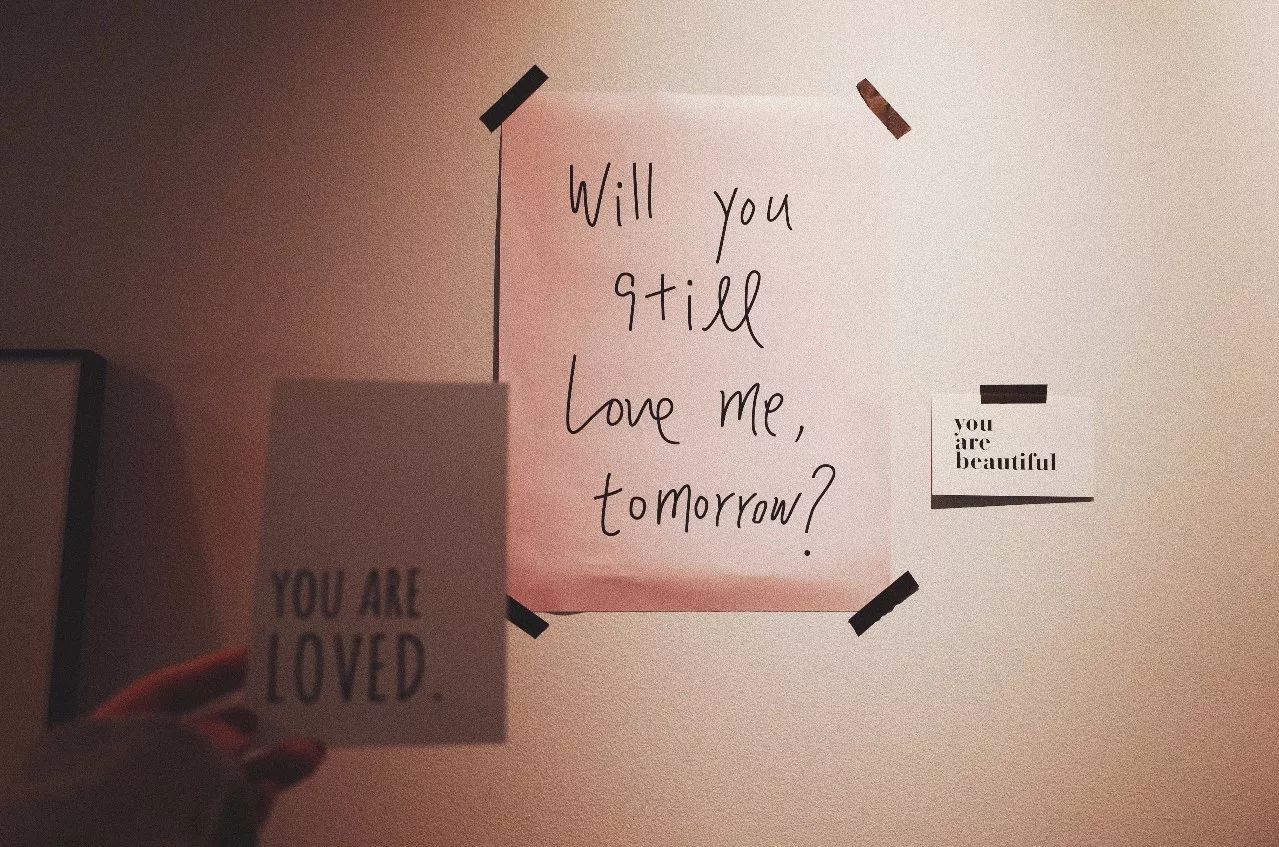 Will you
still
Love me,
tomorrow?
YOU ARE
LOVED.
you
are
beautiful